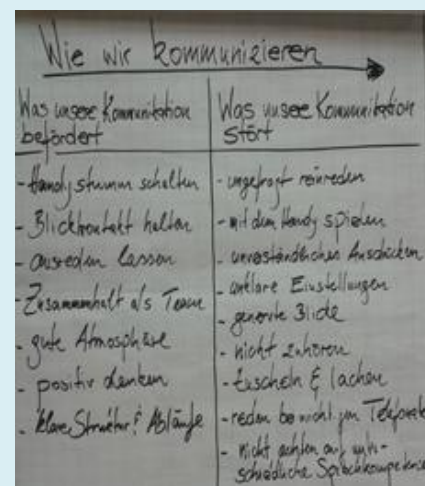 Wie wir kommunizieren
Was unsere Kommunikation
befördert
- Handy stumm schalten
- Blickkontakt halten
- ausreden lassen
- Zusammenhalt als Team
- gute Atmosphäre
- positiv denken
- klare Struktur & Abläufe
Was unsere Kommunikation
stört
- ungefragt reinreden
- mit dem Handy spielen
- unverständliches
- unklare Einstellungen
- genervte Blicke
- nicht zuhören
- tuscheln & lachen
- reden
- nicht achten auf unter-
schiedliche Sprachkompetenz